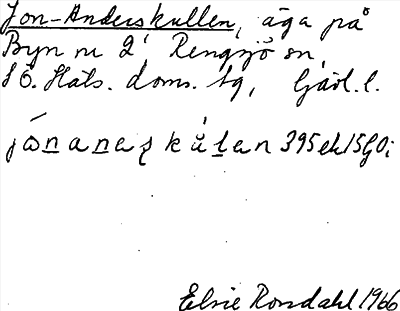 Jon-Anderskullen, äga på
Byn nr 2, Rengsjö sn,
SÖ. Häls. doms. tg, Gävl. l.
395 ek 15 G0;
Elsie Rondahl 1966